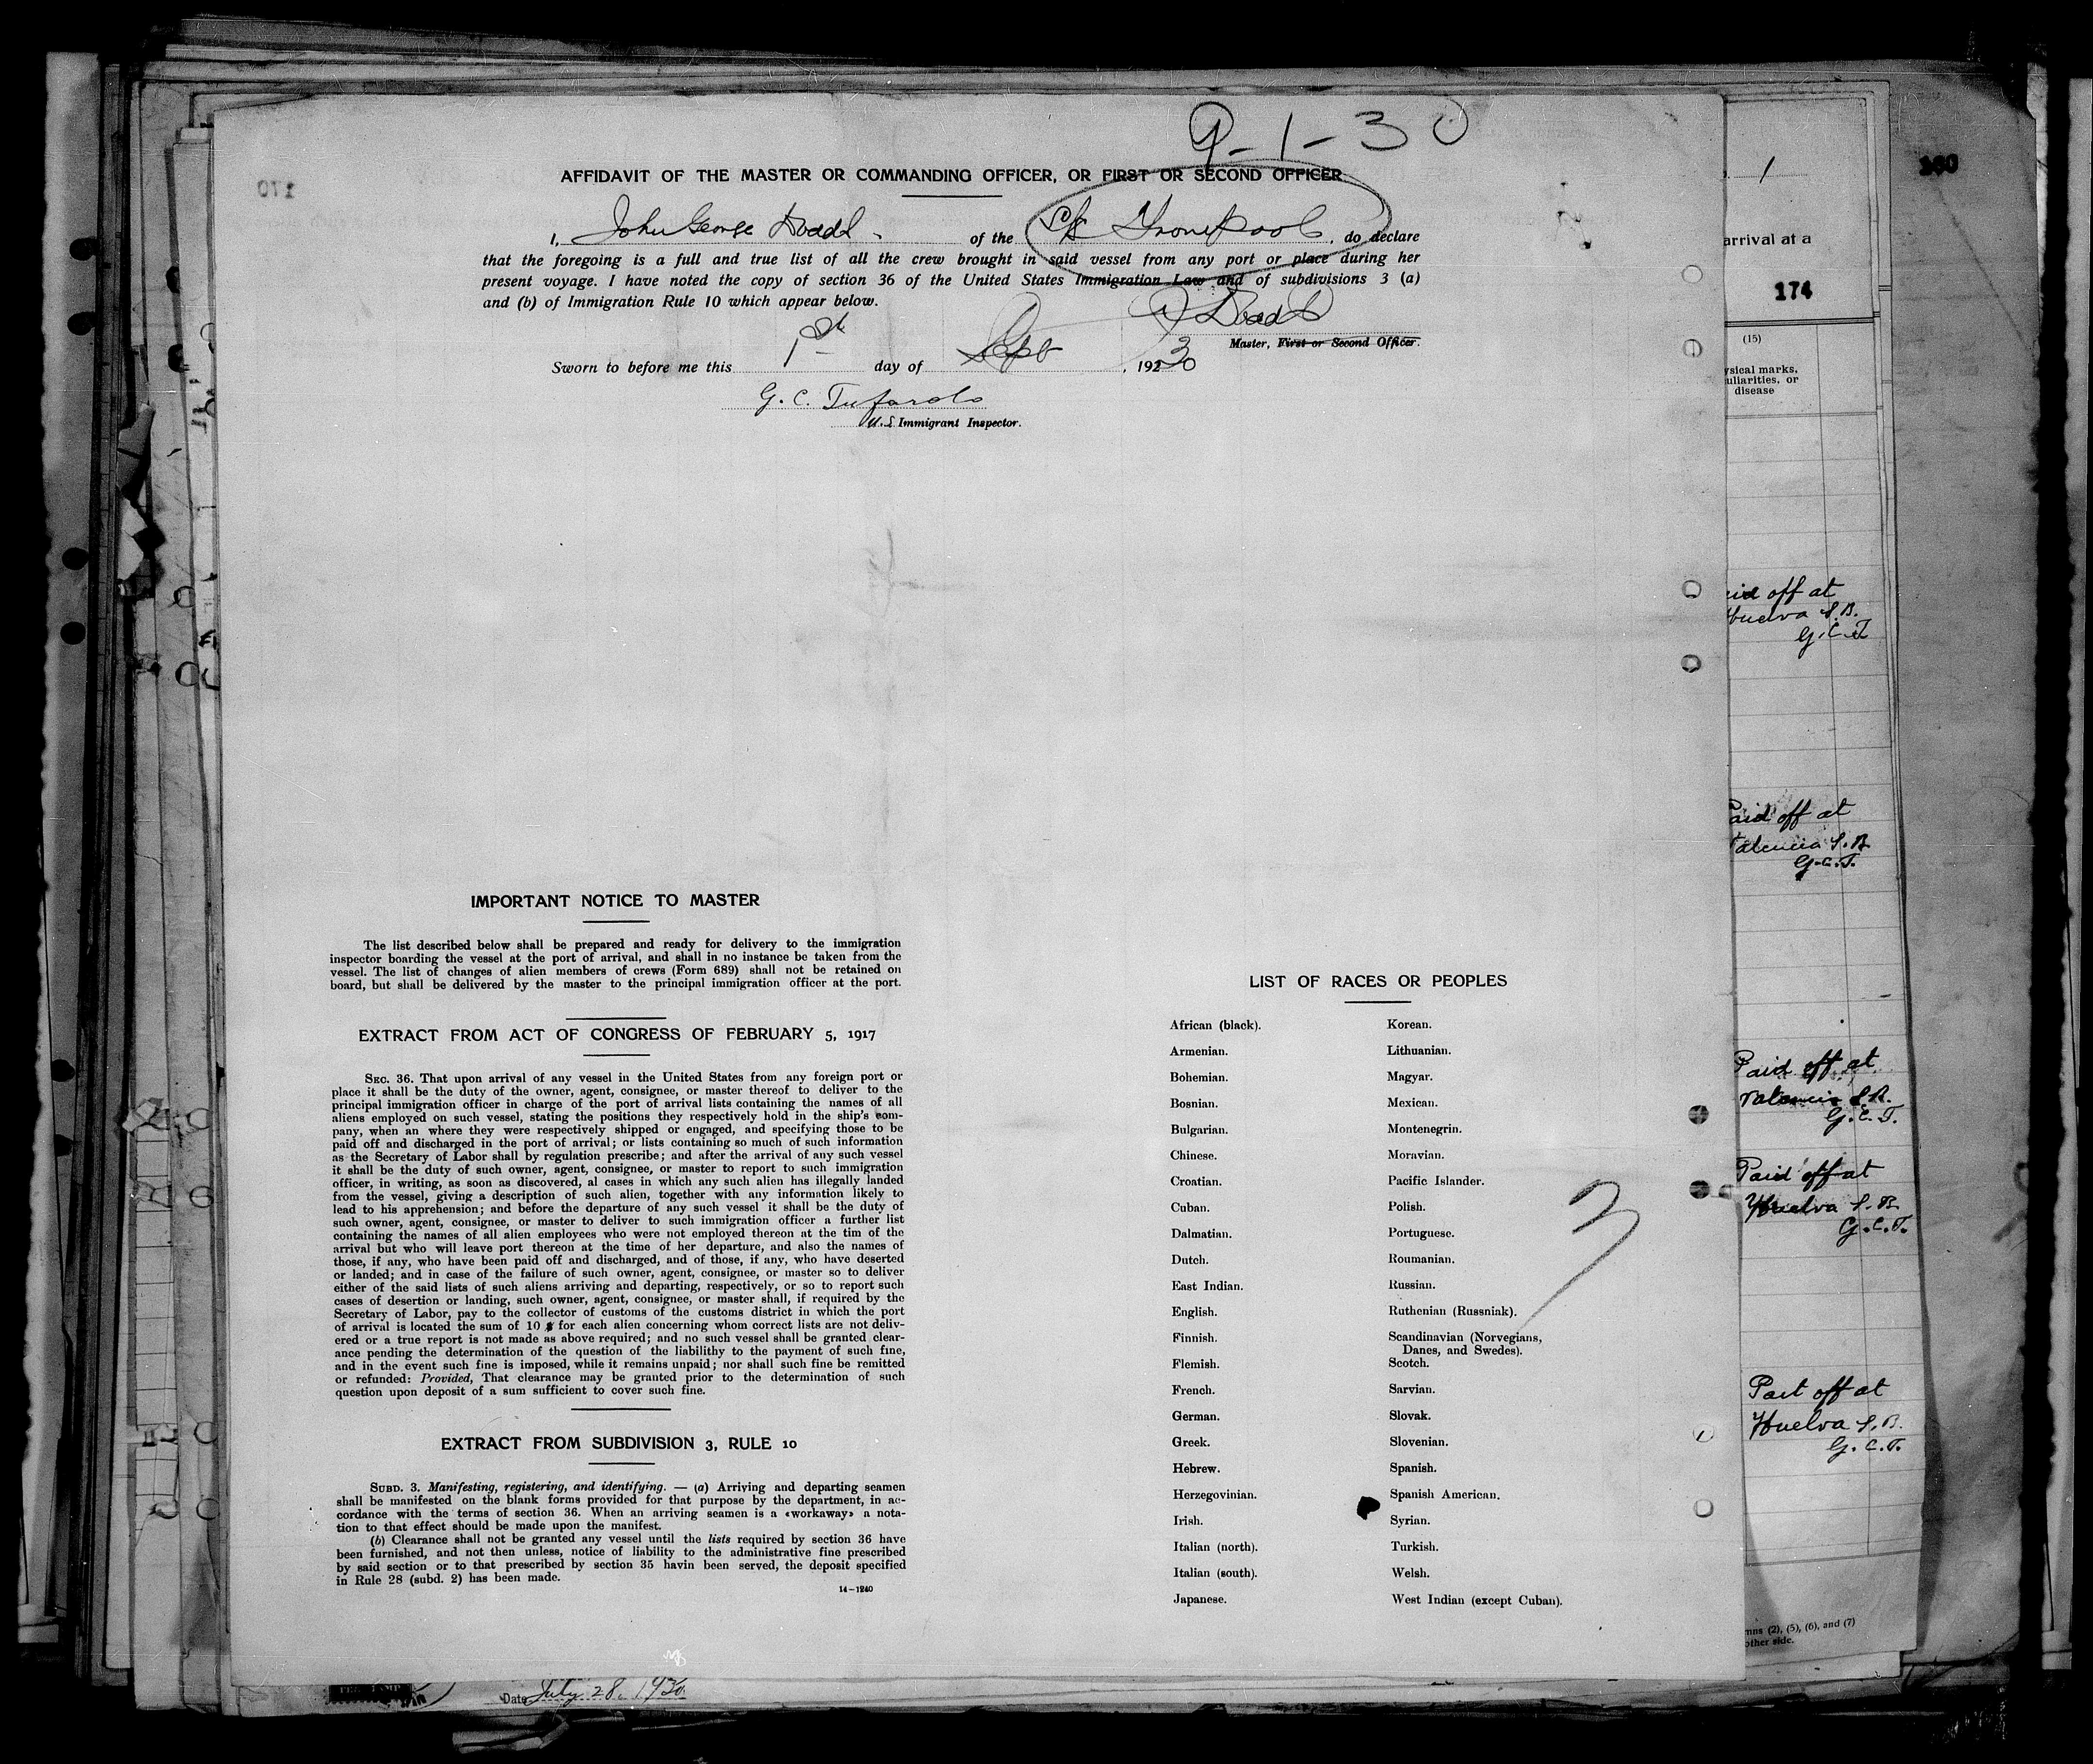 9-1-30
AFFIDAVIT OF THE MASTER OR COMMANDING OFFICER, OR FIRST OR SECOND OFFICER
170
I, John George Dodd of the S/S Ironpool, do declare
that the foregoing is a full and true list of all the crew brought in said vessel from any port or place during her
present voyage. I have noted the copy of section 36 of the United States Immigration Law and of subdivisions 3 (a)
and (b) of Immigration Rule 10 which appear below.
Dodd
Master, First or Second Officer.
Sworn to before me this 1st day of Sept, 192 30
G. C. Tufarolo
U.S. Immigrant Inspector.
IMPORTANT NOTICE TO MASTER
The list described below shall be prepared and ready for delivery to the immigration
inspector boarding the vessel at the port of arrival, and shall in no instance be taken from the
vessel. The list of changes of alien members of crews (Form 689) shall not be retained on
board, but shall be delivered by the master to the principal immigration officer at the port.
EXTRACT FROM ACT OF CONGRESS OF FEBRUARY 5, 1917
SEC. 36. That upon arrival of any vessel in the United States from any foreign port or
place it shall be the duty of the owner, agent, consignee, or master thereof to deliver to the
principal immigration officer in charge of the port of arrival lists containing the names of all
aliens employed on such vessel, stating the positions they respectively hold in the ship's com-
pany, when an where they were respectively shipped or engaged, and specifying those to be
paid off and discharged in the port of arrival; or lists containing so much of such information
as the Secretary of Labor shall by regulation prescribe; and after the arrival of any such vessel
it shall be the duty of such owner, agent, consignee, or master to report to such immigration
officer, in writing, as soon as discovered, al cases in which any such alien has illegally landed
from the vessel, giving a description of such alien, together with any information likely to
lead to his apprehension; and before the departure of any such vessel it shall be the duty of
such owner, agent, consignee, or master to deliver to such immigration officer a further list
containing the names of all alien employees who were not employed thereon at the tim of the
arrival but who will leave port thereon at the time of her departure, and also the names of
those, if any, who have been paid off and discharged, and of those, if any, who have deserted
or landed; and in case of the failure of such owner, agent, consignee, or master so to deliver
either of the said lists of such aliens arriving and departing, respectively, or so to report such
cases of desertion or landing, such owner, agent, consignee, or master shall, if required by the
Secretary of Labor, pay to the collector of customs of the customs district in which the port
of arrival is located the sum of 10 $ for each alien concerning whom correct lists are not deliv-
ered or a true report is not made as above required; and no such vessel shall be granted clear-
ance pending the determination of the question of the liabilithy to the payment of such fine,
and in the event such fine is imposed, while it remains unpaid; nor shall such fine be remitted
or refunded: Provided, That clearance may be granted prior to the determination of such
question upon deposit of a sum sufficient to cover such fine.
EXTRACT FROM SUBDIVISION 3, RULE 10
SUBD. 3. Manifesting, registering, and identifying. — (a) Arriving and departing seamen
shall be manifested on the blank forms provided for that purpose by the department, in ac-
cordance with the terms of section 36. When an arriving seamen is a «workaway» a nota-
tion to that effect should be made upon the manifest.
(b) Clearance shall not be granted any vessel until the lists required by section 36 have
been furnished, and not then unless, notice of liability to the administrative fine prescribed
by said section or to that prescribed by section 35 havin been served, the deposit specified
in Rule 28 (subd. 2) has been made.
14-1240
LIST OF RACES OR PEOPLES
African (black).
Armenian.
Bohemian.
Bosnian.
Bulgarian.
Chinese.
Croatian.
Cuban.
Dalmatian.
Dutch.
East Indian.
English.
Finnish.
Flemish.
French.
German.
Greek.
Hebrew.
Herzegovinian.
Irish.
Italian (north).
Italian (south).
Japanese.
Korean.
Lithuanian.
Magyar.
Mexican.
Montenegrin.
Moravian.
Pacific Islander.
Polish.
Portuguese.
Roumanian.
Russian.
Ruthenian (Russniak).
Scandinavian (Norvegians,
Danes, and Swedes).
Scotch.
Sarvian.
Slovak.
Slovenian.
Spanish.
Spanish American.
Syrian.
Turkish.
Welsh.
West Indian (except Cuban).
3
1
160
arrival at a
174
(15)
ysical marks,
uliarities, or
disease
aid off at
Huelva S.B.
G.C.T.
Paid off at
Valencia S.B.
G.C.T.
Paid off at
Valencia S.B.
G.C.T.
Paid off at
Huelva S.B.
G.C.T.
Part off at
Huelva S.B.
G.C.T.
mns (2), (5), (6), and (7)
other side.
Date July 28, 1930